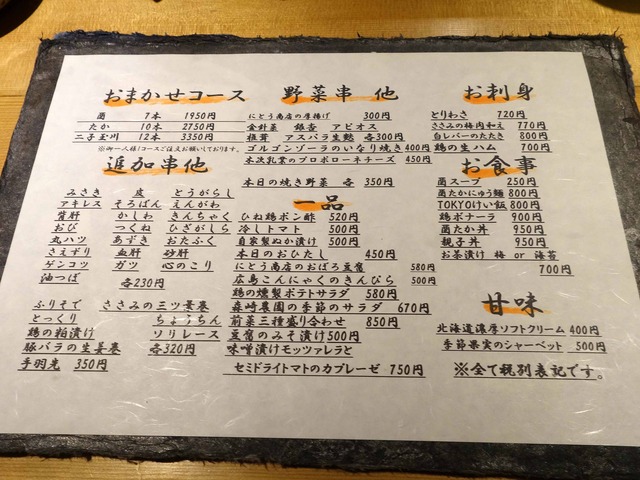 おまかせコース
酉 7本 1950円
たか 10本 2750円
二子玉川 12本 3350円
※御一人様1コースご注文お願いしております。
追加串他
みさき 皮 とうがらし
アキレス そろばん えんがわ
背肝 かしわ きんちゃく
おび つくね ひざぐらし
丸ハツ あずき おたふく
さえずり 血肝 砂肝
ゲンコツ ガツ 心のこり
油つぼ 各230円
ふりそで ささみの三ツ葉巻
とっくり ちょうちん
鶏の粕漬け ソリレース
豚バラの生姜巻 各320円
手羽先 350円
野菜串 他
にとう商店の厚揚げ 300円
金針菜 銀杏 アピオス
椎茸 アスパラ生麩 各300円
ゴルゴンゾーラのいなり焼き400円
木次乳業のプロボローネチーズ 450円
本日の焼き野菜 各 350円
一品
ひね鶏ポン酢 520円
冷しトマト 500円
自家製ぬか漬け 500円
本日のおひたし 450円
にとう商店のおぼろ豆腐 580円
広島こんにゃくのきんぴら 500円
鶏の燻製ポテトサラダ 580円
森崎農園の季節のサラダ 670円
前菜三種盛り合わせ 850円
豆腐のみそ漬け500円
味噌漬けモッツァレラと
セミドライトマトのカプレーゼ 750円
お刺身
とりわさ 720円
ささみの梅肉和え 770円
白レバーのたたき 800円
鶏の生ハム 700円
お食事
酉スープ 250円
酉たかにゅう麺 800円
TOKYOけい飯 800円
鶏ボナーラ 900円
酉たか丼 950円
親子丼 950円
お茶漬け 梅 or 海苔
700円
甘味
北海道濃厚ソフトクリーム 400円
季節果実のシャーベット 500円
※全て税別表記です。